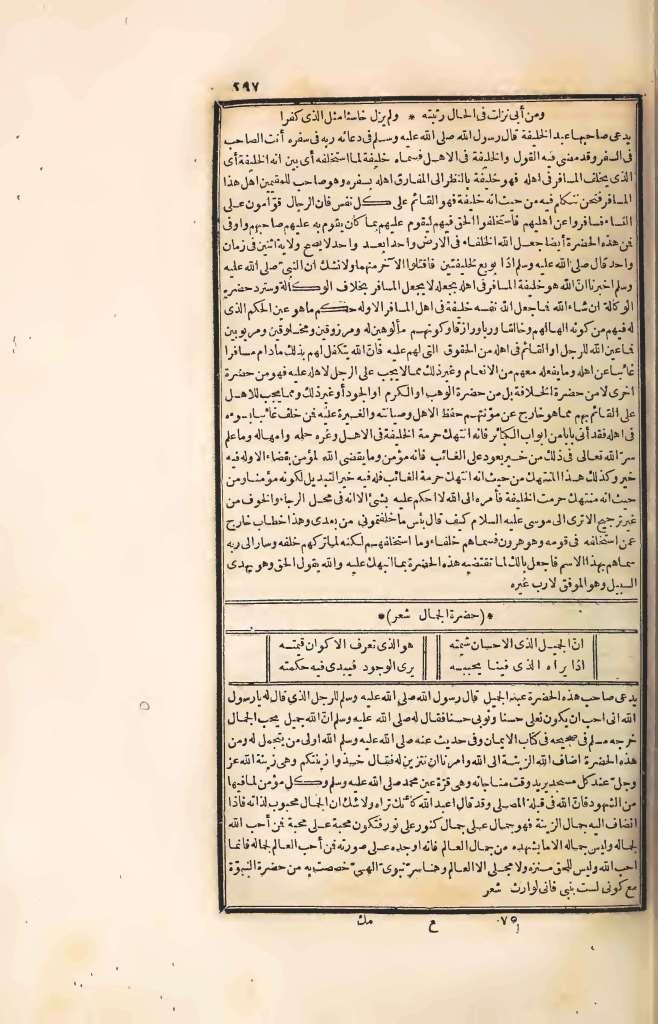 ٢٩٧
ومن أبى نزلت فى الحال رتبته * ولم يزل خاسئا مثل الذى كفرا
يدعى صاحبها عبد الخليفة قال رسول الله صلى الله عليه وسلم فى دعائه ربه فى سفره أنت الصاحب
فى السفر وقد مضى فيه القول والخليفة فى الاهل فسماه خليفة لما استخلفه أى بين انه الخليفة أى
الذى يخلف المسافر فى اهله فهو خليفة بالنظر الى المفارق اهله بسفره وهو صاحب للمقيمين اهل هذا
المسافر فنحن نتكلم فيه من حيث انه خليفة فهو القائم على كل نفس فان الرجال قوّامون على
النساء فسافروا عن اهليهم فاستخلفوا الحق فيهم ليقوم عليهم بما كان يقوم به عليهم صاحبهم واوفى
فمن هذه الحضرة أيضا جعل الله الخلفاء فى الارض واحدا بعد واحد لا يصح ولاية اثنين فى زمان
واحد قال صلى الله عليه وسلم اذا بويع لخليفتين فاقتلوا الآخر منهما ولا نشك ان النبىّ صلى الله عليه
وسلم اخبرنا انّ الله هو خليفة المسافر فى اهله بجعله لا بجعل المسافر بخلاف الوكالة وسترد حضرة
الوكالة ان شاء الله فما جعل الله نفسه خليفة فى اهل المسافر الا وله حكم ما هو عين الحكم الذى
له فيهم من كونه الها لهم وخالقا وربا ورازقا وكونهم مألوهين له ومرزوقين ومخلوقين ومربوبين
فما عين الله للرجل او القائم فى اهله من الحقوق التى لهم عليه فانّ الله يتكفل لهم بذلك ما دام مسافرا
غائبا عن اهله وما يفعله معهم من الانعام وغير ذلك مما لا يجب على الرجل لاهله عليه فهو من حضرة
اخرى لا من حضرة الخلافة بل من حضرة الوهب او الكرم او الجود أو غير ذلك ومما يجب للاهل
على القائم بهم مما هو خارج عن مؤنتهم حفظ الاهل وصيانته والغيرة عليه فمن خلف غائبا بسوء
فى اهله فقد أتى بابا من ابواب الكبائر فانه انتهك حرمة الخليفة فى الاهل وغره حلمه وامهاله وما علم
سرّ الله تعالى فى ذلك من خير يعود على الغائب فانه مؤمن وما يقضى الله لمؤمن بقضاء الا وله فيه
خير وكذلك هذا المنتهك من حيث انه انتهك حرمة الغائب فله فيه خير التبديل لكونه مؤمنا ومن
حيث انه منتهك حرمت الخليفة فأمره الى الله لا احكم عليه بشئ الا انه فى محل الرجاء والخوف من
غير ترجيح الا ترى الى موسى عليه السلام كيف قال بئس ما خلفتمونى من بعدى وهذا خطاب خارج
عمن استخلفه فى قومه وهو هرون فسماهم خلفاء وما استخلفهم لكنه لما تركهم خلفه وسار الى ربه
سماهم بهذا الاسم فاجعل بالك لما تقتضيه هذه الحضرة بما انبهك عليه والله يقول الحق وهو يهدى
السبيل وهو الموفق لا رب غيره
*(حضرة الجمال شعر)*
انّ الجميل الذى الاحسان شيمته هو الذى تعرف الاكوان قيمته
اذا يراه الذى فينا يحببه يرى الوجود فيبدى فيه حكمته
يدعى صاحب هذه الحضرة عبد الجميل قال رسول الله صلى الله عليه وسلم للرجل الذى قال له يا رسول
الله انى احب ان يكون نعلى حسنا وثوبى حسنا فقال له صلى الله عليه وسلم انّ الله جميل يحب الجمال
خرجه مسلم فى صحيحه فى كتاب الايمان وفى حديث عنه صلى الله عليه وسلم الله اولى من يتجمل له ومن
هذه الحضرة اضاف الله الزينة الى الله وامرنا ان نتزين له فقال خذوا زينتكم وهى زينة الله عز
وجلّ عند كل مسجد يريد وقت مناجاته وهى قرّة عين محمد صلى الله عليه وسلم وكل مؤمن لما فيها
من الشهود فانّ الله فى قبلة المصلى وقد قال اعبد الله كأنك تراه ولا شك ان الجمال محبوب لذاته فاذا
انضاف اليه جمال الزينة فهو جمال على جمال كنور على نور فتكون محبة على محبة فمن أحب الله
لجماله وليس جماله الا ما يشهده من جمال العالم فانه اوجده على صورته فمن أحب العالم لجماله فانما
احب الله وليس للحق منزه ولا مجلى الا العالم وهنا سرّ نبوىّ الهىّ خصصت به من حضرة النبوّة
مع كونى لست بنبى فانى لوارث شعر
٧٥ ع مك